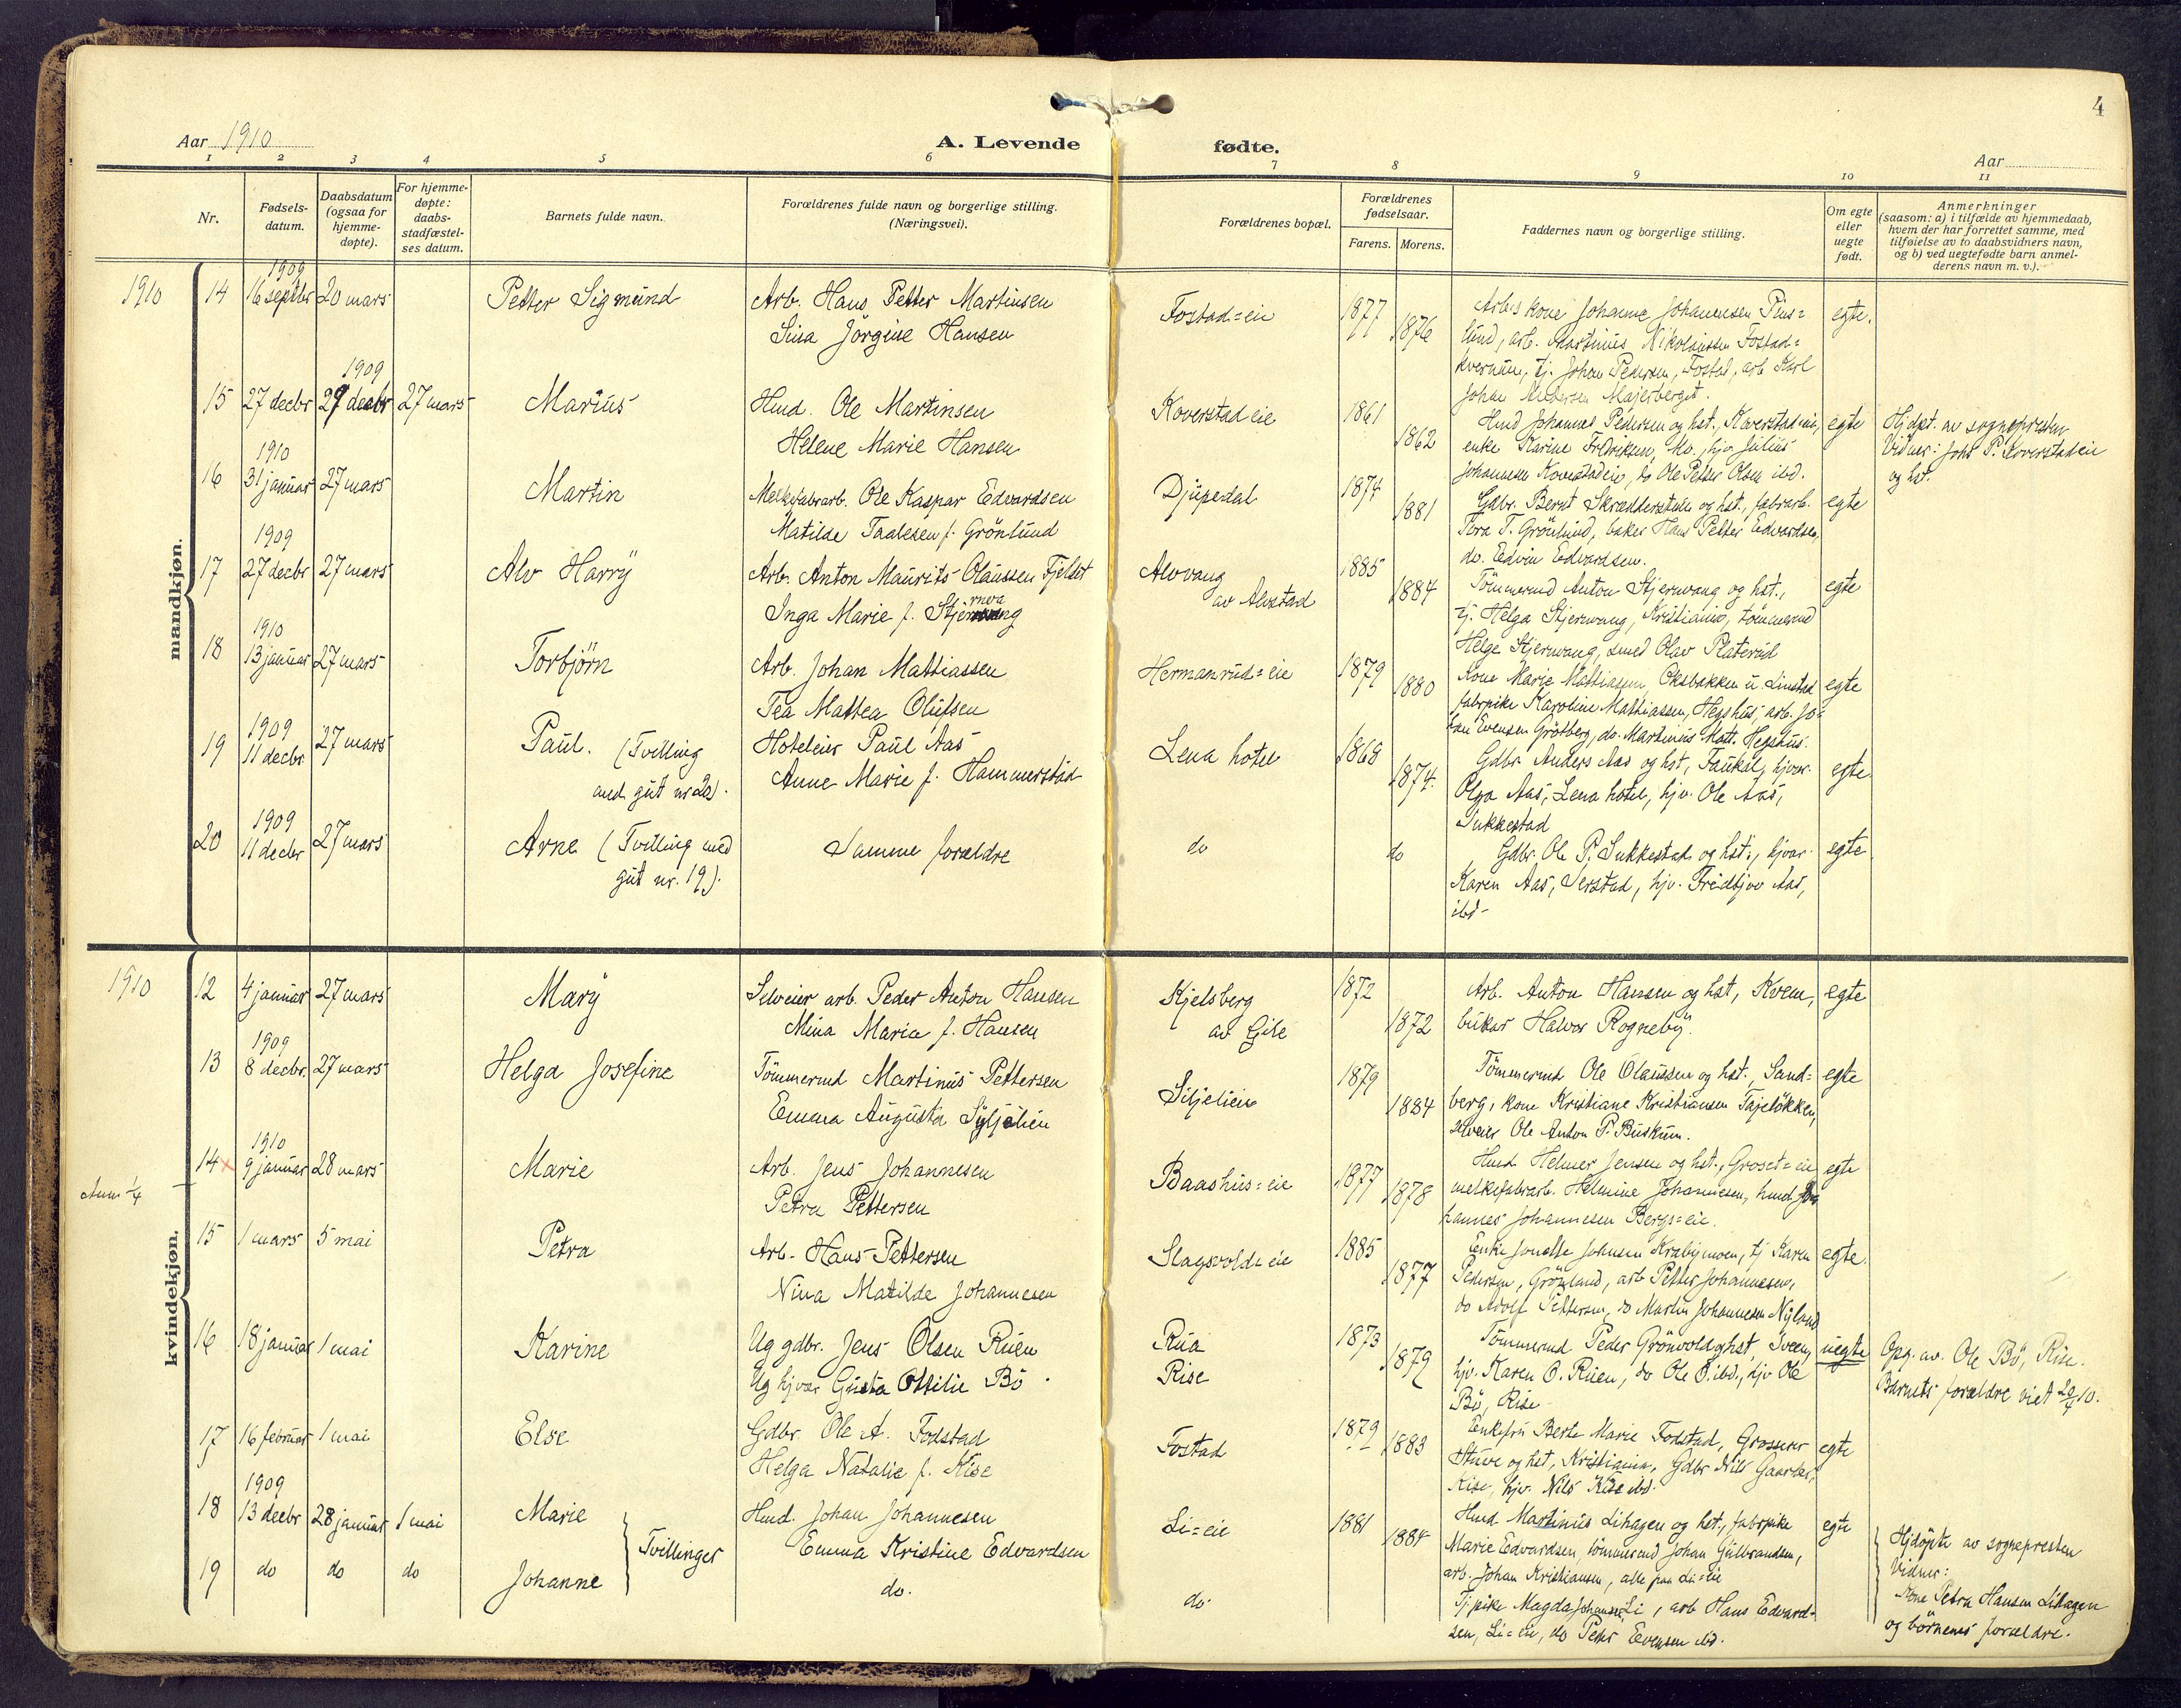 4
Aar 1910
A. Levende fødte.
Aar
1 2 3 4 5 6 7 8 9 10 11
Nr.
Fødsels-
datum.
Daabsdatum
(ogsaa for
hjemme-
døpte).
For hjemme-
døpte:
daabs-
stadfæstel-
ses datum.
Barnets fulde navn.
Forældrenes fulde navn og borgerlige stilling.
(Næringsvei).
Forældrenes bopæl.
Forældrenes
fødselsaar.
Farens. Morens.
Faddernes navn og borgerlige stilling.
Om egte
eller
uegte
født.
Anmerkninger
(saasom: a) i tilfælde av hjemmedaab,
hvem der har forrettet samme, med
tilføielse av to daabsvidners navn,
og b) ved uegtefødte barn anmel-
derens navn m. v.).
mandkjøn.
1910
14
1909
16 septbr
20 mars
Petter Sigmund
Arb. Hans Petter Martinsen
Lina Jörgine Hansen
Fostad=eie
1877
1876
Arb.s kone Johanne Johannesen
lund, arb. Martinius Nikolaissen Fostad=
kvernum, tj. Johan Pedersen, Fostad, arb Karl
Johan Andersen Majerberget.
egte.
15
27 decbr
1909
29 decbr
27 mars
Marius
Hmd. Ole Martinsen
Helene Marie Hansen
Koverstad eie
1861
1862
Hmd Johannes Pedersen og hst., Koverstad eie,
enke Karine Fredriksen, do., hjv Julius
Johannesen Koverstadeie, do Ole Petter Olsen ibd.
egte
Hjdpt. av sognepresten
Vidner: Johs P. Koverstadeie
og hst.
16
1910
31 januar
27 mars
Martin
Melkefabrarb. Ole Kaspar Edvardsen
Matilde Taalesen f. Grönlund
Djupedal
1874
1881
Gdbr. Bernt Skrædderstuen og hst., fabrarb.
Tora T. Grönlund, baker Hans Petter Edvardsen,
do. Edvin Edvardsen.
egte
17
1909
27 decbr
27 mars
Alv Harry
Arb. Anton Maurits Olaussen Fjelset
Inga Marie f. Stjernvang
Alvvang
av Alvstad
1885
1884
Tömmermd Anton Stjernvang og hst.,
tj. Helga Stjernvang, Kristiania, tömmermd
Helge Stjernvang, smed Olav Platerud
egte
18
1910
13 januar
27 mars
Torbjörn
Arb. Johan Mattiassen
Tea Mattea Olufsen
Hermanrud=eie
1879
1880
Kone Marie Mattiassen, Oksbakken u. Linstad
fabrpike Karoline Mathiassen, Hegshus, arb. Jo=
han Evensen Grötberg, do. Martinius Matt. Hegshus.
egte
19
1909
11 decbr
27 mars
Paul. (Tvilling
med gut nr 20).
Hoteleier Paul Aas
Anne Marie f. Hammerstad
Lena hotel
1868
1874.
Gdbr Anders Aas og hst, Faukal, hjvar.
Olga Aas, Lena hotel, hjv. Ole Aas,
Sukkestad
egte
20
1909
11 decbr
27 mars
Arne (Tvilling med
gut nr. 19).
Samme forældre
do
do
Gdbr. Ole P. Sukkestad og hst., hjvar.
Karen Aas, Serstad, hjv. Fridtjov Aas,
ibd-
egte
kvindekjøn.
1910
12
4 januar
27 mars
Mary
Selveier arb. Peder Anton Hansen
Mina Maria f. Hansen
Kjelsberg
av Gile
1872
1872
Arb. Anton Hansen og hst, Kvem,
bukar Halvor Rogneby.
egte
13
1909
8 decbr.
27 mars
Helga Josefine
Tömmermd Martinus Pettersen
Emma Augusta Syljelien
Siljelien
1879
1884
Tömmermd Ole Olaussen og hst. Sand=
berg, kone Kristiane Kristiansen Tajelökken,
selveier Ole Anton P. Buskum.
egte
14
1910
9 januar
28 mars
Marie
Arb. Jens Johannesen
Petra Pettersen
Baashus=eie
1877
1878
Hmd Helmer Jensen og hst., Groset=eie
melkefabrarb. Helmine Johannesen, hmd Jo=
hannes Johannesen Bergs=eie.
egte
15
1 mars
5 mai
Petra
Arb. Hans Pettersen
Nina Matilde Johannesen
Slagsvold=eie
1885
1877
Enke Jonette Johnsen Krabymoen, tj Karen
Pedersen, Grönland, arb Petter Johannesen,
do Adolf Pettersen, do Martin Johannesen Nyland
egte.
16
18 januar
1 mai
Karine
Ug gdbr. Jens Olsen Ruen
Ug hjvar Gusta Ottilie Bö
Rua
Rise
1873
1879
Tömmermd Peder Grönvold og hst, Sveen,
hjv. Karen O. Ruen, do Ole O. ibd., hjv Ole
Bö, Rise
uegte
Opg. av. Ole Bö, Rise.
Barnets forældre viet 20/4 10.
17
16 februar
1 mai
Else
Gdbr. Ole A. Fodstad
Helga Natalie f. Kise
Fostad
1879
1883
Enkefru Berte Marie Fodstad, Grosserer
Stuve og hst, Kristiania, Gdbr Nils Gaarder,
Kise, hjv. Nils Kise ibd.
egte
18
1909
13 decbr
28 januar
1 mai
Marie
Hmd. Johan Johannesen
Emma Kristine Edvardsen
Li=eie
1881
1884
Hmd Martinius Lihagen og hst, fabrpike
Marie Edvardsen, tömmermd Johan Gulbrandsen,
arb. Johan Kristiansen, alle paa Li=eie
egte
Tvillinger
19
do
do
do
Johanne
do.
do.
Tj.pike Magda Johansen Li, arb Hans Edvard=
sen, Li=eie, do Peder Evensen ibd.
Hjdöpte av sognepresten
Vidner:
Kone Petra Hansen Lihagen
og börnenes forældre.